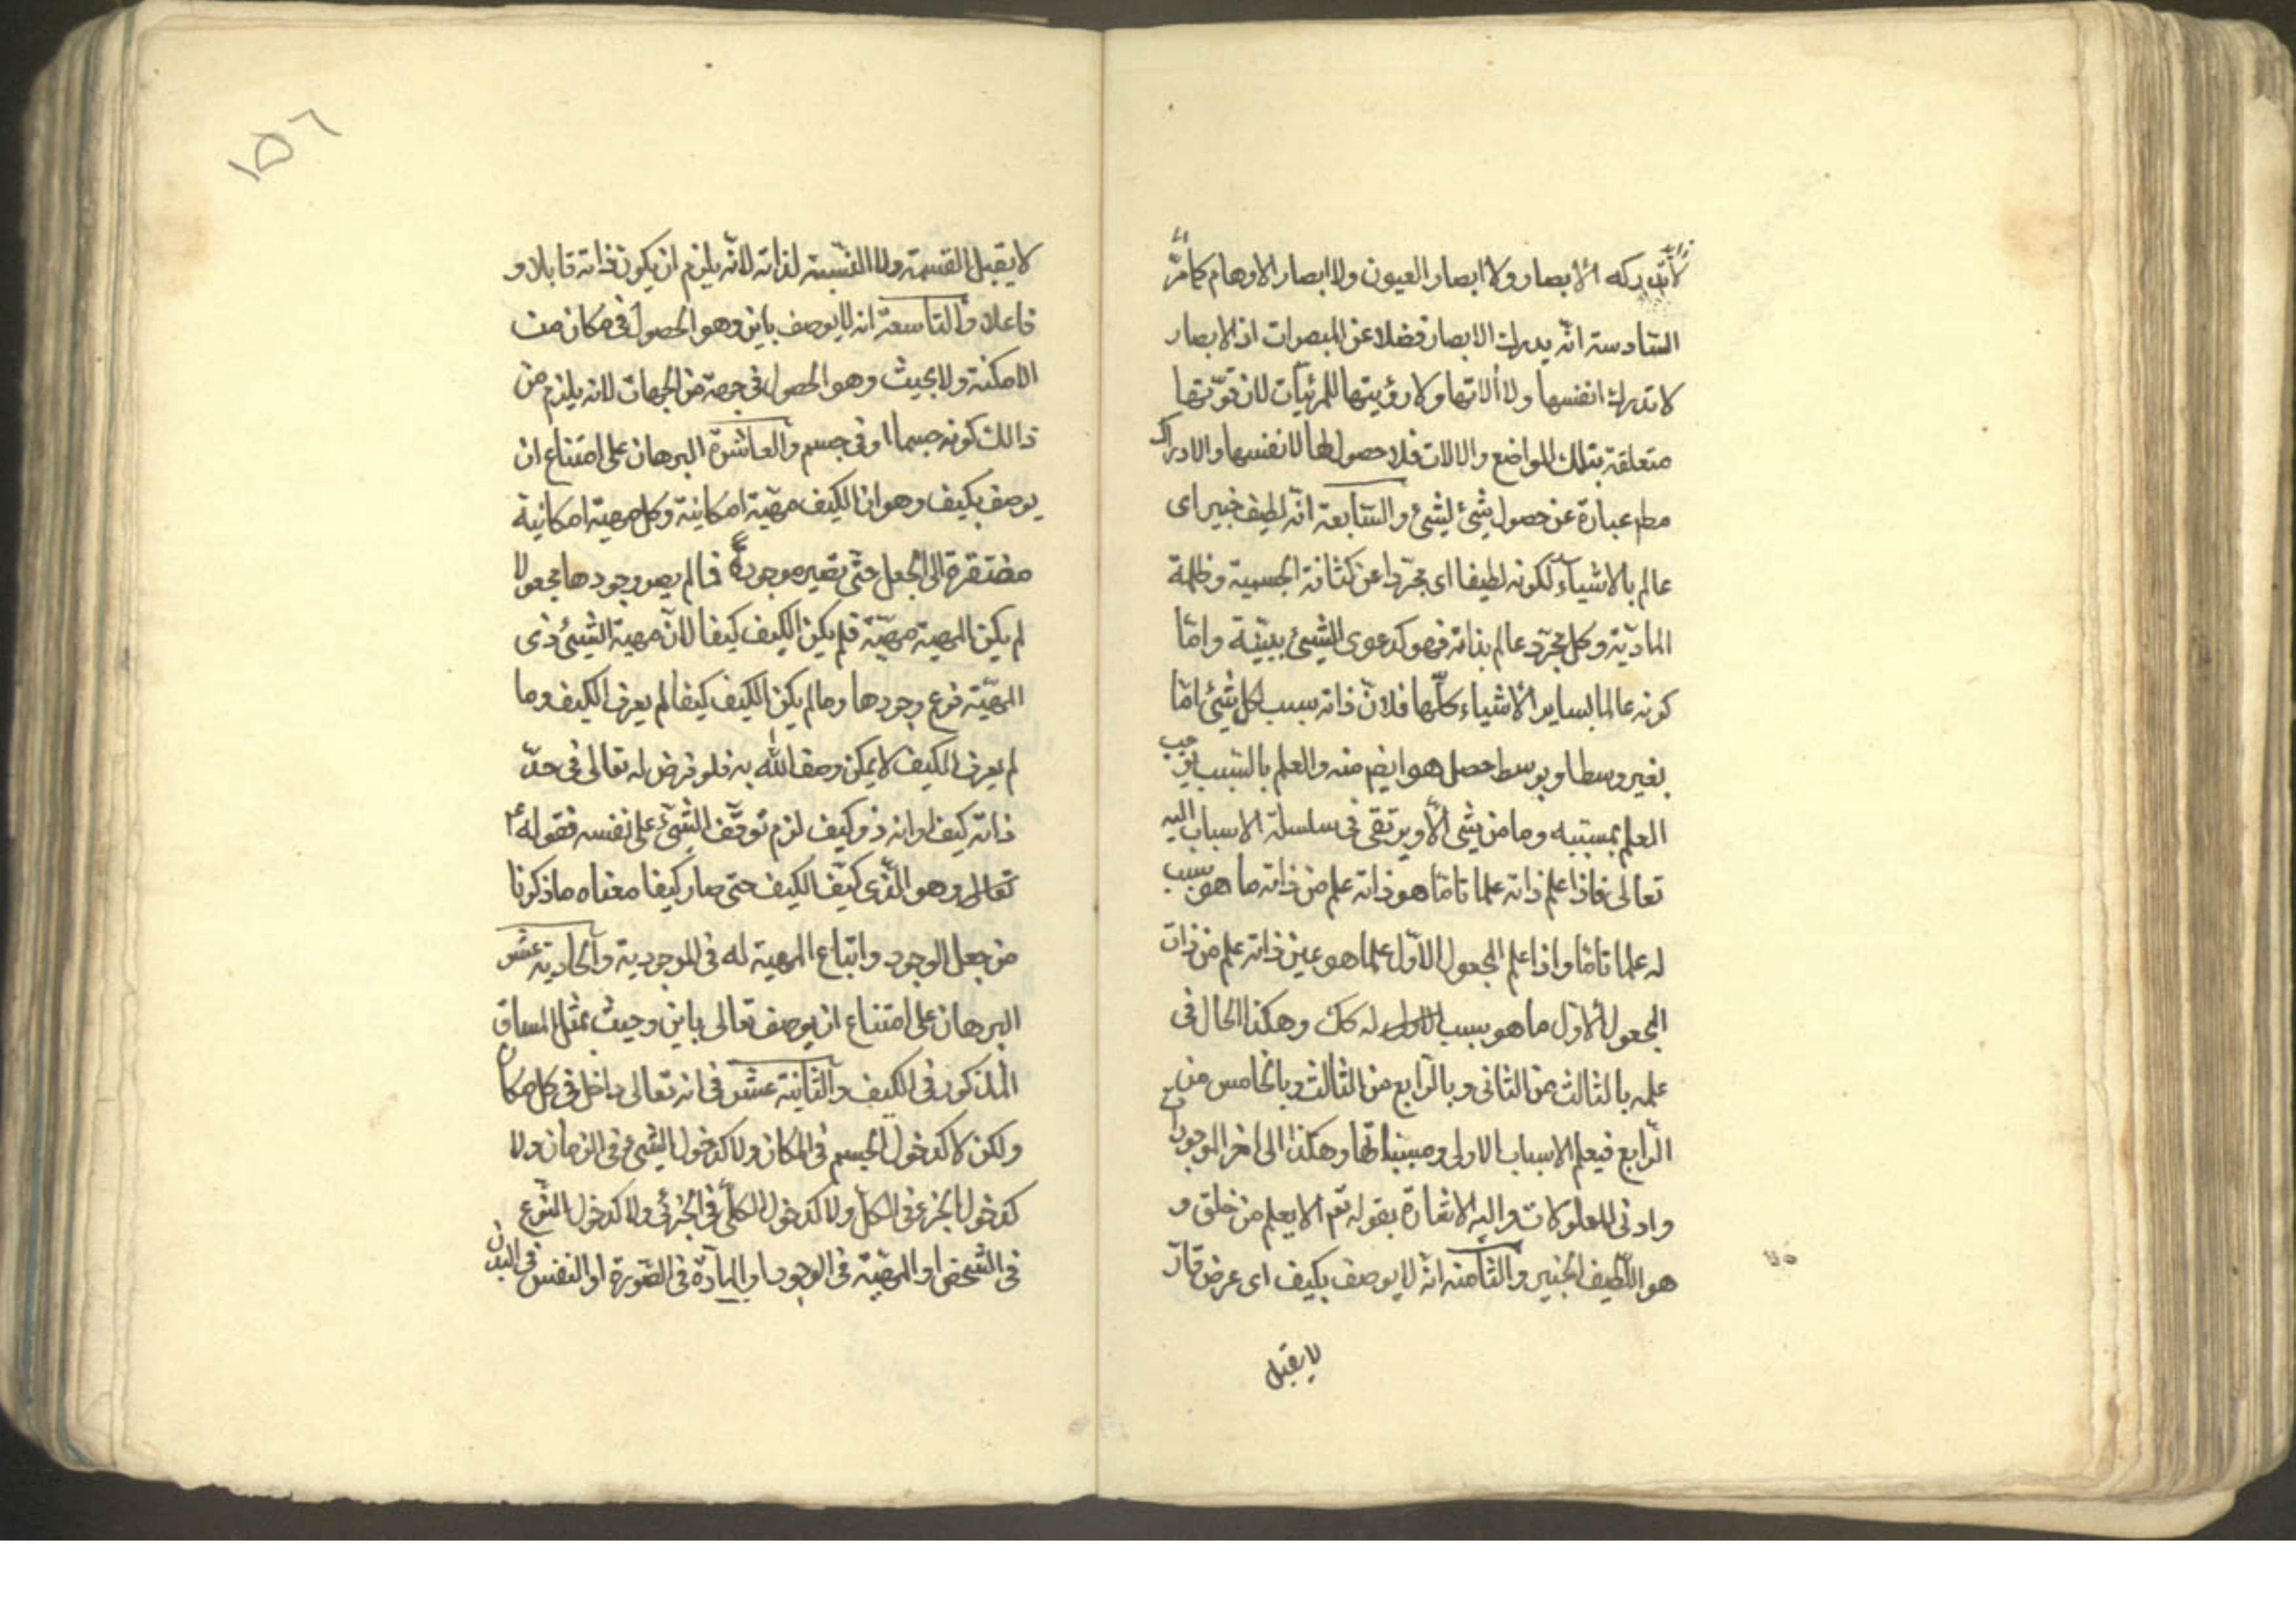 لا تدركه الأبصار ولا ابصار العيون ولا ابصار الاوهام كما مرّ
السّادسة انّه يدرك الابصار فضلا عن المبصرات اذ الابصار
لا تدرك انفسها ولا ألاتها ولا رؤيتها للمرئيّات لان قوّتها
متعلقة بتلك المواضع والالات فلا حصول لها لانفسها والادراك
مطم عبارة عن حصول شئ لشئ والسّابعة انّه لطيف خبير اى
عالم بالاشياء لكونه لطيفا اى مجرّدا عن كثافة الجسمية وظلمة
الماديّة وكل مجرّد عالم بذاته فهو كدعوى الشيئ ببيّنة وامّا
كونه عالما بساير الأشياء كلّها فلانّ ذاته سبب لكل شئ امّا
بغير وسط او بوسط حصل هو ايضم منه والعلم بالسّبب يوجب
العلم بمسبّبه وما من شئ الّا ويرتقى فى سلسلة الاسباب اليه
تعالى فاذا علم ذاته علما تامّا هو ذاته علم من ذاته ما هو سبب
له علما تامّا واذا علم المجعول الاوّل علما هو عين ذاته علم من ذات
المجعول الأوّل ما هو بسبب الاول له كك وهكذا الحال فى
علمه بالثالث من الثانى وبالرّابع من الثالث وبالخامس من
الرّابع فيعلم الاسباب الاولى ومسبّباتها وهكذا الى اخر الموجودات
وادنى المعلولات واليه الاشارة بقوله تعم الا يعلم من خلق و
هو اللّطيف الخبير والثّامنه انّه لا يوصف بكيف اى عرض قارّ
لا يقبل
١٥٦
لا يقبل القسمة ولا النّسبة لذاته لانّه يلزم ان يكون ذاته قابلا و
فاعلا والتاسعة انه لا يوصف باين وهو الحصول فى مكان من
الامكنة ولا بحيث وهو الحصول فى جهة من الجهات لانه يلزم من
ذالك كونه جسما او فى جسم والعاشرة البرهان على امتناع ان
يوصف بكيف وهو ان الكيف مهيّة امكانية وكل مهية امكانية
مفتقرة الى الجعل حتّى تصير موجودة فما لم يصر وجودها مجعولا
لم يكن المهية مهيّة فلم يكن الكيف كيفا لانّ مهية الشيئ ذى
المهيّة فرع وجودها وما لم يكن الكيف كيفا لم يعرف الكيف وما
لم يعرف الكيف لا يمكن وصف الله به فلو فرض له تعالى فى حدّ
ذاته كيف او انه ذو كيف لزم توقّف الشّئ على نفسه فقوله
تعالى وهو الّذى كيّف الكيف حتى صار كيفا معناه ما ذكرنا
من جعل الوجود واتباع المهية له فى الموجودية والحادية عشر
البرهان على امتناع ان يوصف تعالى باين وحيث بمثل المساق
المذكور فى الكيف والثانية عشر فى انه تعالى داخل فى كل مكان
ولكن لا كدخول الجسم فى المكان ولا كدخول الشئ فى الزمان ولا
كدخول الجزء فى الكل ولا كدخول الكلّى فى الجزئى ولا كدخول النّوع
فى الشخص او المهيّة فى الوجود او المادّة فى الصّورة او النفس فى البدن